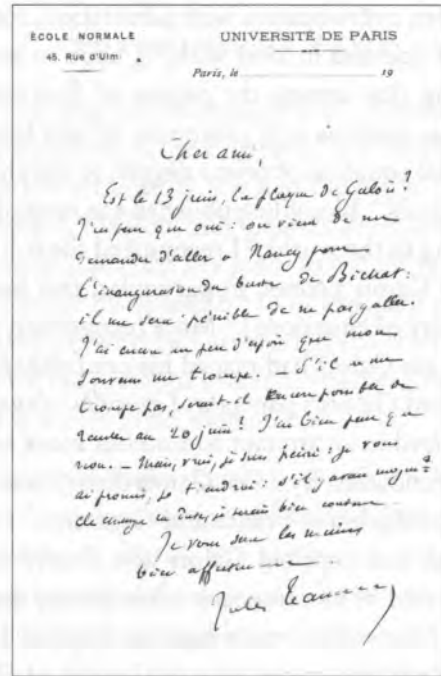 ÉCOLE NORMALE
45, Rue d'Ulm
UNIVERSITÉ DE PARIS
Paris, le 19
Cher ami,
Est-ce le 13 juin, la plaque de Galois?
J'ai peur que oui : on vient de me
demander d'aller à Nancy pour
l'inauguration du buste de Bichat :
il me sera pénible de ne pas y aller.
J'ai encore un peu d'espoir que mon
souvenir me trompe. S'il ne me
trompe pas, serait-il encore possible de
reculer au 20 juin? J'ai bien peur que
non. — Mais, vrai, je suis peiné : je vous
ai promis, je tiendrai : s'il y a moyen
de changer la date, je serais bien content
Je vous serre les mains
bien affectueusement
Jules Tannery